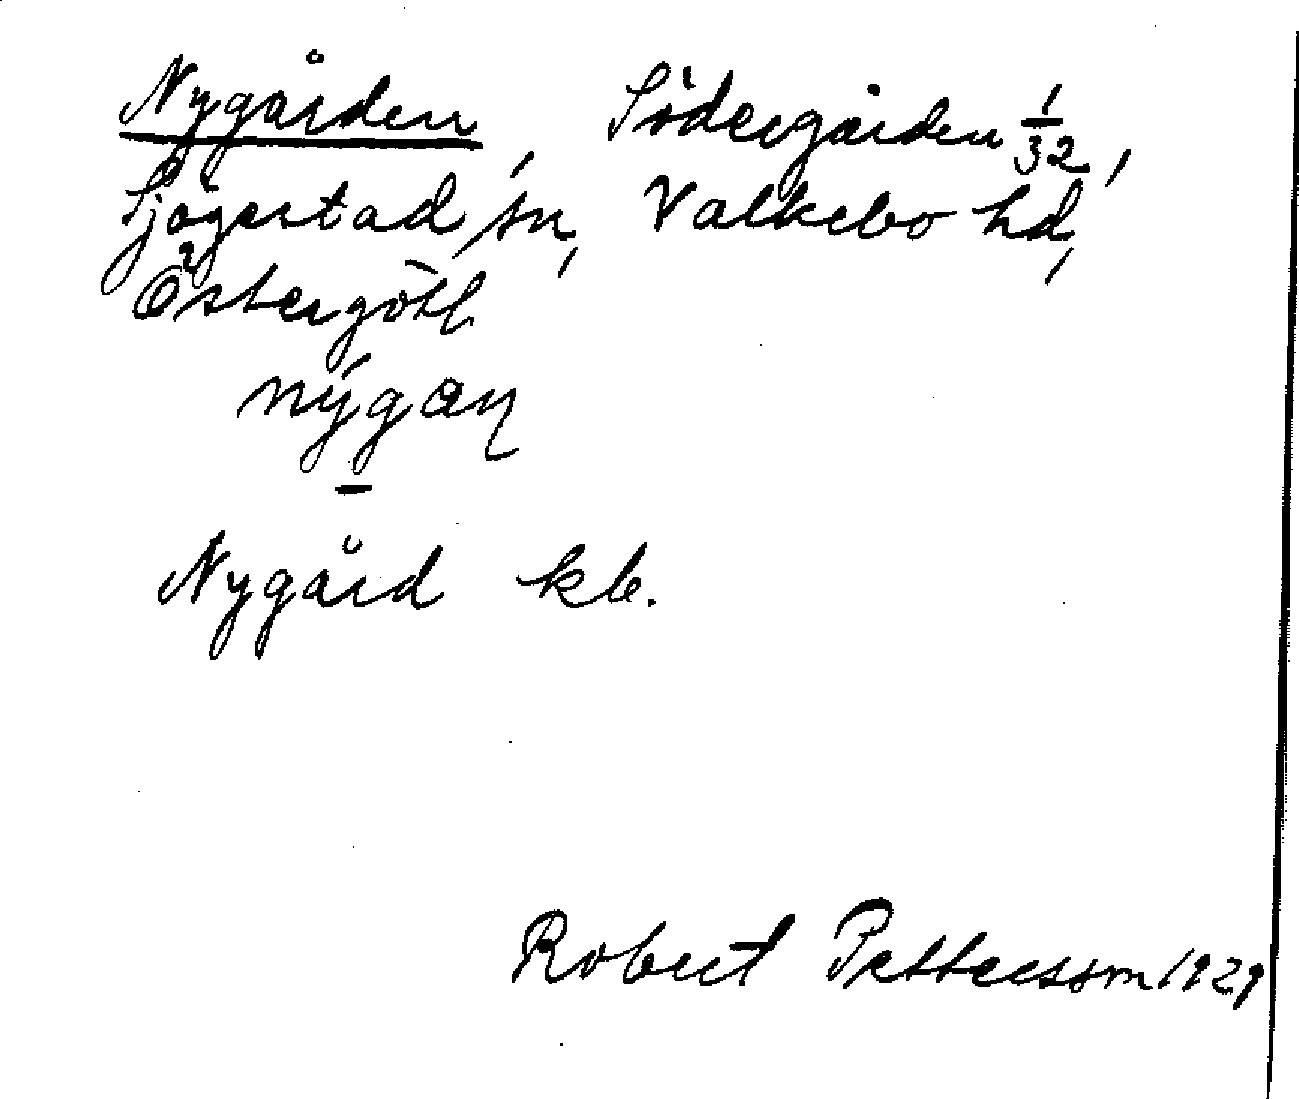 Nygården, Södergården 1/32,
Sjögestad sn, Valkebo hd,
Östergötl.
nýgaɳ
Nygård kb.
Robert Pettersson 1929